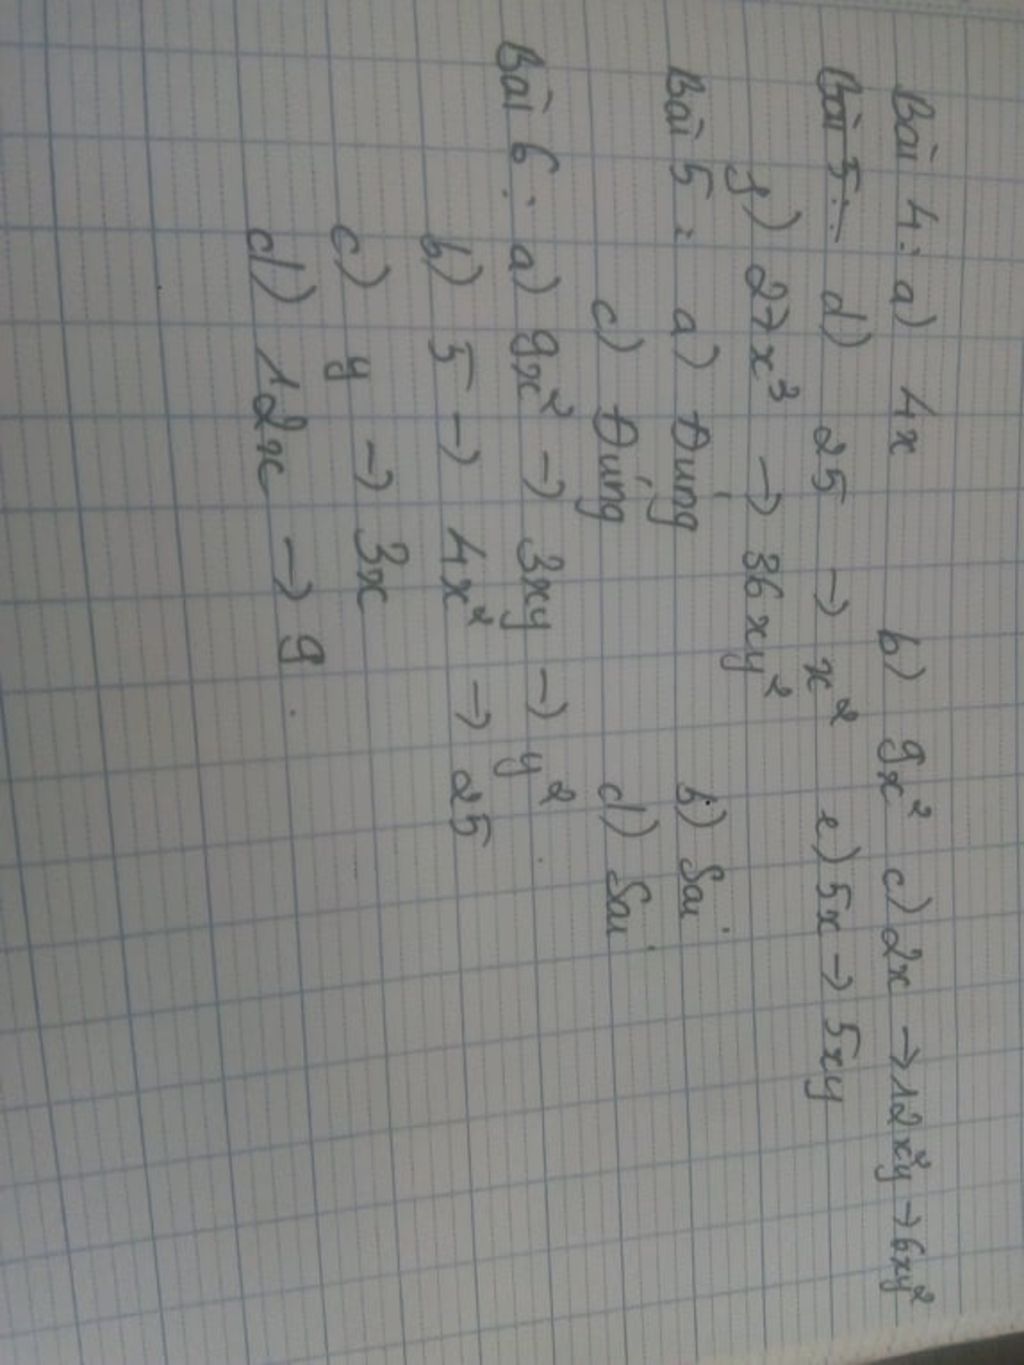 Bài 4: a) 4x b) 9x² c) 2x → 12x²y → 6xy²
Bài 5: d) 25 → x² e) 5x → 5xy
f) 27x³ → 36xy²
Bài 5: a) Đúng b) Sai
c) Đúng d) Sai
Bài 6: a) 9x² → 3xy → y²
b) 5 → 4x² → 25
c) y → 3x
d) 12x → 9